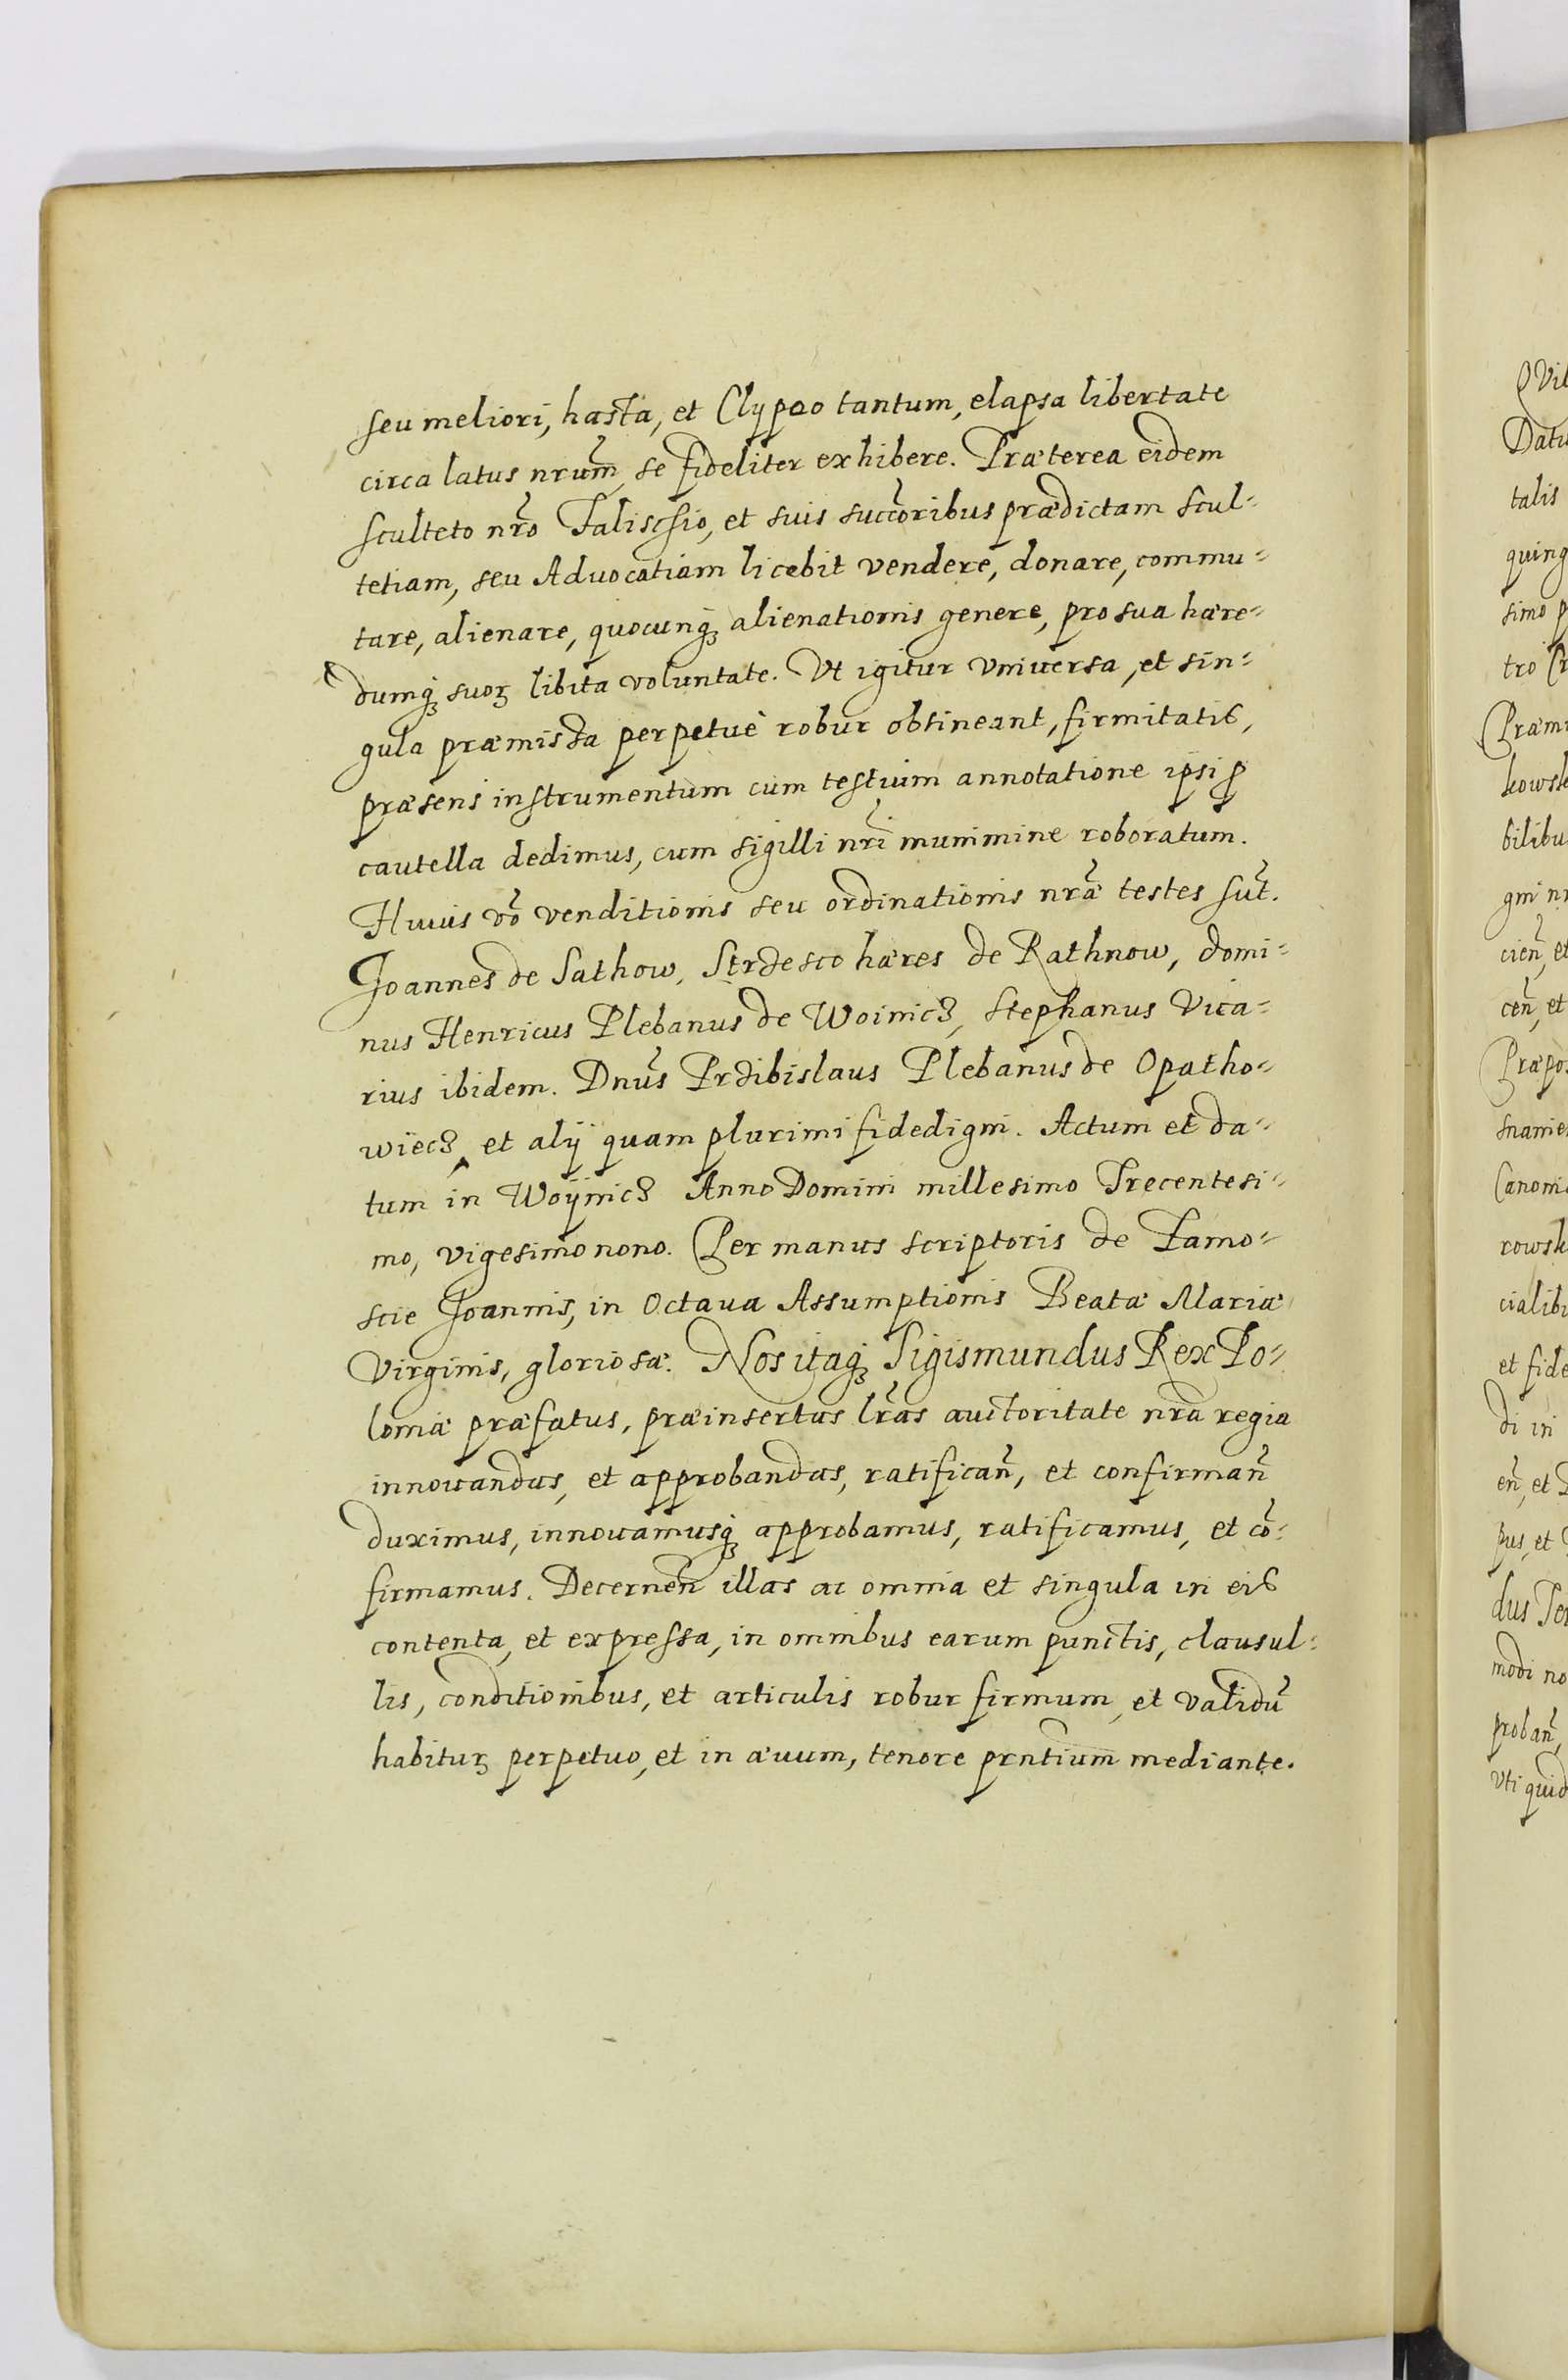 seu meliori, hasta, et Clypeo tantum, elapsa libertate
circa latus nrum̃, se fideliter exhibere. Præterea eidem
sculteto nr̃o Falischio, et suis succõribus prædictam scul=
tetiam, seu Aduocatiam licebit vendere, donare, commu=
tare, alienare, quocunqꝫ alienationis genere, pro sua hære=
dumqꝫ suoꝝ libita voluntate. Vt igitur vniuersa, et sin=
gula præmissa perpetuè robur obtineant, firmitatis,
præsens instrumentum cum testium annotatione ipsi ꝓ
cautella dedimus, cum sigilli nr̃i munimine roboratum.
Huius võ venditionis seu ordinationis nr̃æ testes sũt.
Joannes de Sathow, Strdesco hæres de Rathnow, domi=
nus Henricus Plebanus de Woinicz, Stephanus Vica=
rius ibidem. Dnũs Prdibislaus Plebanus de Opatho=
wiecz, et alÿ quam plurimi fidedigni. Actum et da=
tum in Woÿnicz Anno Domini millesimo Trecentesi=
mo, vigesimo nono. Per manus scriptoris de Zamo=
scie Joannis, in Octaua Assumptionis Beatæ Mariæ
Virginis, gloriosæ. Nos itaqꝫ Sigismundus Rex Po=
loniæ præfatus, præinsertas lr̃as auctoritate nr̃a regia
innouandas, et approbandas, ratificañ, et confirmañ
duximus, innouamusqꝫ approbamus, ratificamus, et cõ=
firmamus. Decerneñ illas ac omnia et singula in eis
contenta, et expressa, in omnibus earum punctis, clausul=
lis, conditionibus, et articulis robur firmum, et validũ
habituꝝ perpetuo, et in æuum, tenore prñtium mediante.
QVi
Datu
talis
quing
simo p
tro
Præm
kowsk
bilibu
gni n
cieñ, et
ceñ, et
Præpo
snamie
Canoni
rowsk
cialib
et fide
di in
eñ, et
pus, et
dus
modi no
probañ,
Vti quid